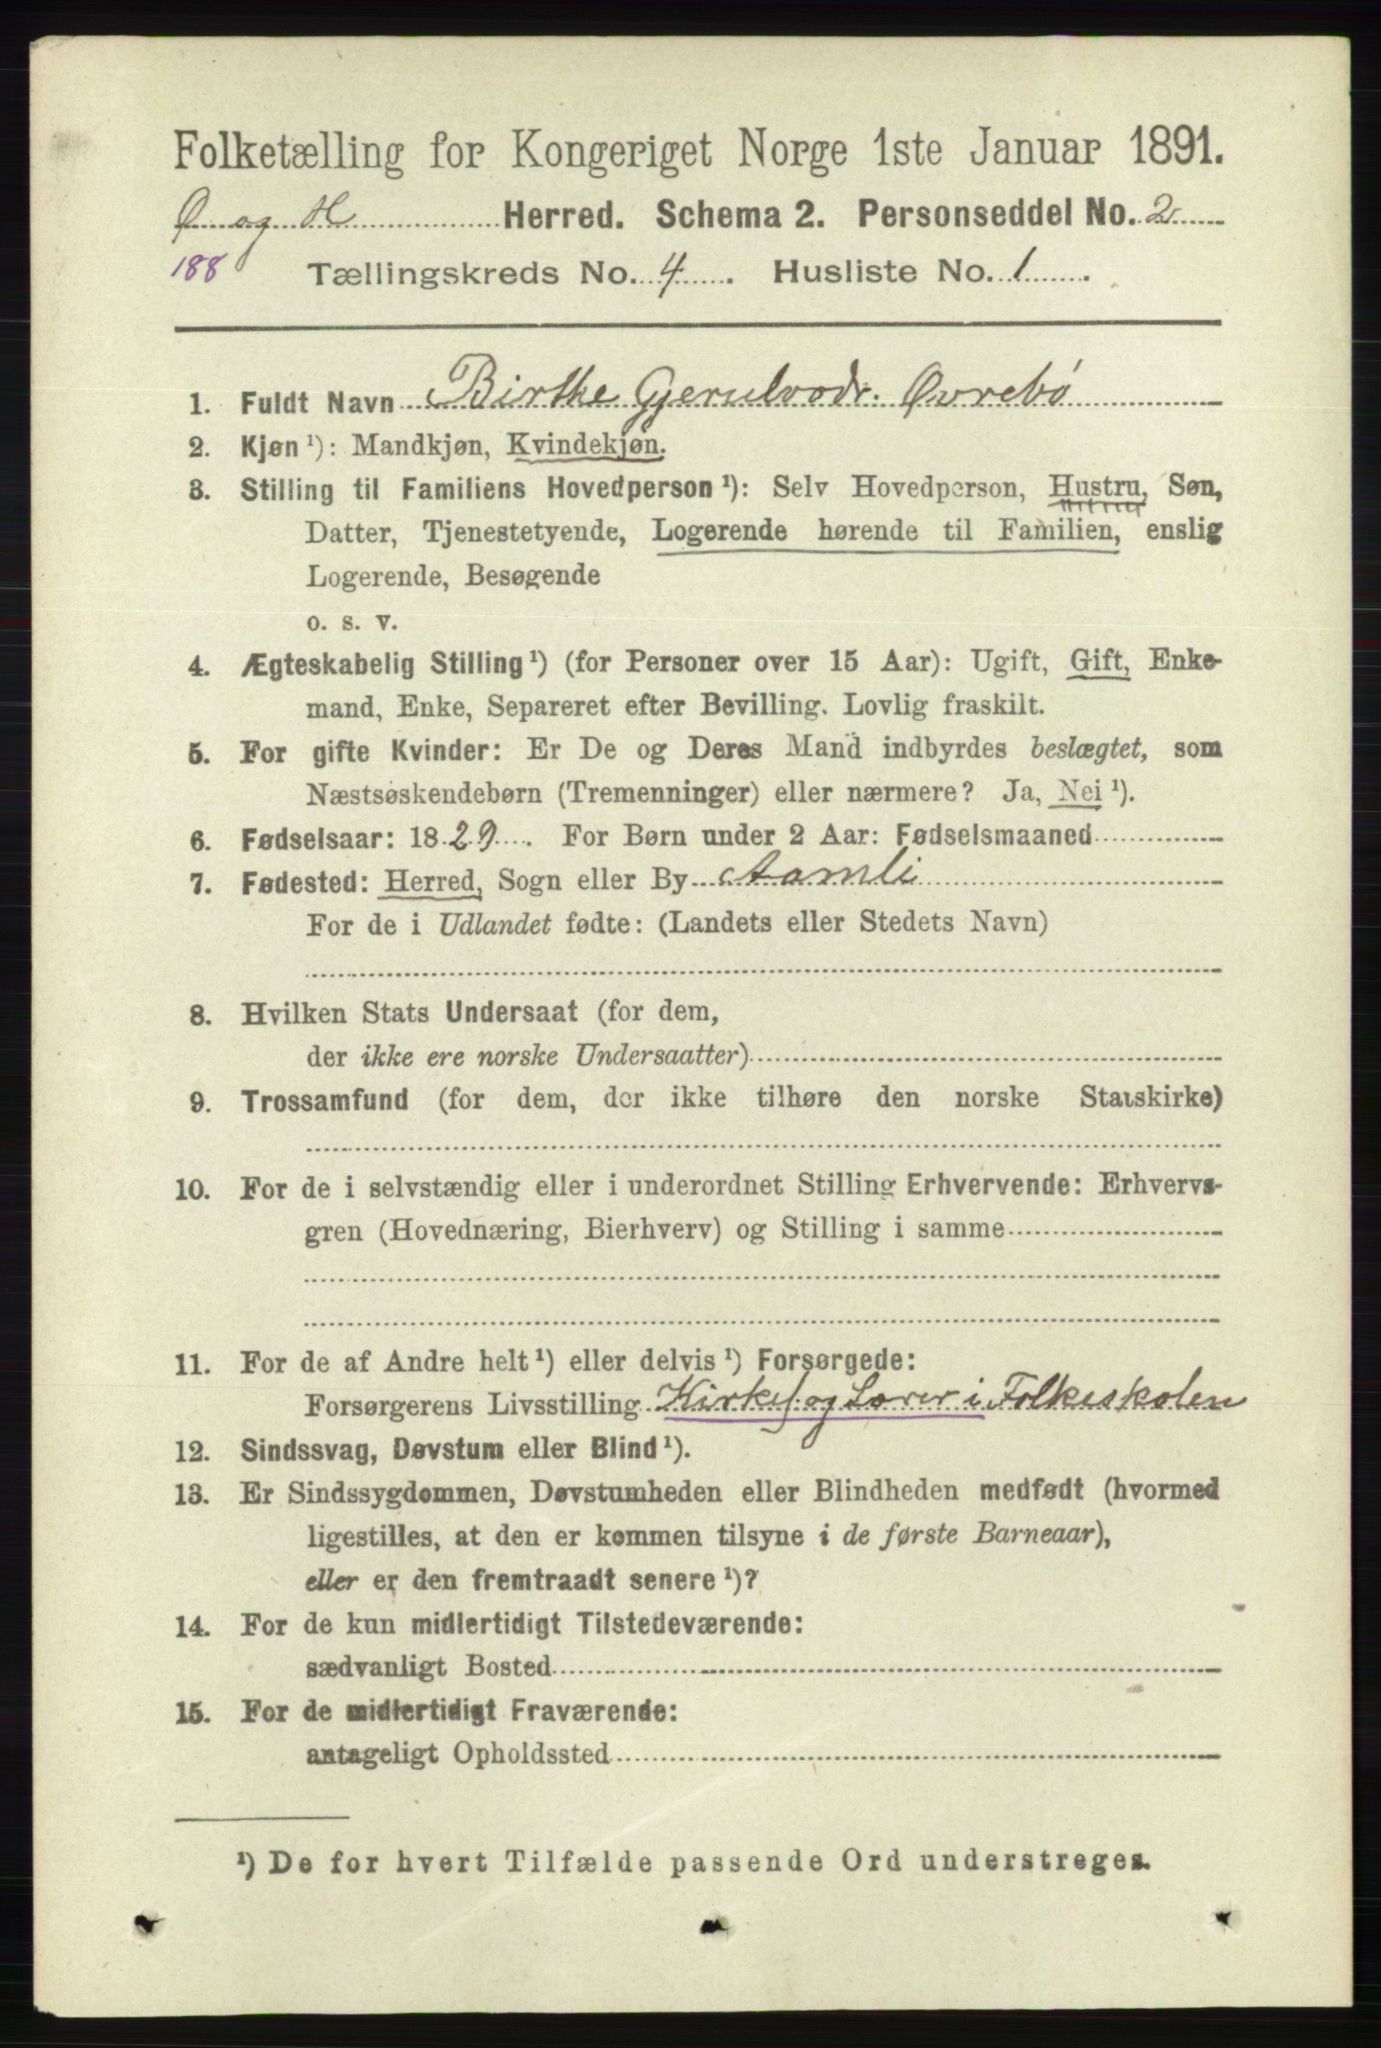 Folketælling for Kongeriget Norge 1ste Januar 1891.
Ø og H Herred. Schema 2. Personseddel No. 2
188 Tællingskreds No. 4. Husliste No. 1.
1. Fuldt Navn Birthe Gjerulvsdr. Øvrebø
2. Kjøn ¹): Mandkjøn, Kvindekjøn.
3. Stilling til Familiens Hovedperson ¹): Selv Hovedperson, Hustru, Søn,
Datter, Tjenestetyende, Logerende hørende til Familien, enslig
Logerende, Besøgende
o. s. v.
4. Ægteskabelig Stilling ¹) (for Personer over 15 Aar): Ugift, Gift, Enke-
mand, Enke, Separeret efter Bevilling. Lovlig fraskilt.
5. For gifte Kvinder: Er De og Deres Mand indbyrdes beslægtet, som
Næstsøskendebørn (Tremenninger) eller nærmere? Ja, Nei ¹).
6. Fødselsaar: 1829. For Børn under 2 Aar: Fødselsmaaned
7. Fødested: Herred, Sogn eller By Aamli
For de i Udlandet fødte: (Landets eller Stedets Navn)
8. Hvilken Stats Undersaat (for dem,
der ikke ere norske Undersaatter)
9. Trossamfund (for dem, der ikke tilhøre den norske Statskirke)
10. For de i selvstændig eller i underordnet Stilling Erhvervende: Erhvervs-
gren (Hovednæring, Bierhverv) og Stilling i samme
11. For de af Andre helt ¹) eller delvis ¹) Forsørgede:
Forsørgerens Livsstilling Kirkes. og Lærer i Folkeskolen
12. Sindssvag, Døvstum eller Blind ¹).
13. Er Sindssygdommen, Døvstumheden eller Blindheden medfødt (hvormed
ligestilles, at den er kommen tilsyne i de første Barneaar),
eller er den fremtraadt senere ¹)?
14. For de kun midlertidigt Tilstedeværende:
sædvanligt Bosted
15. For de midlertidigt Fraværende:
antageligt Opholdssted
¹) De for hvert Tilfælde passende Ord understreges.